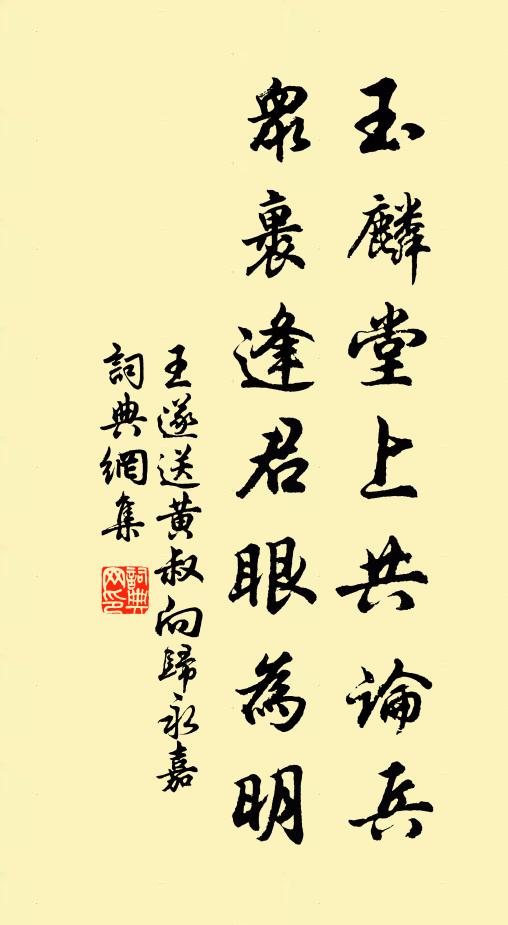 玉麟堂上共論兵
眾裏逢君眼為明
王遂送黄叔向歸永嘉
詞典網集
詞典
网印